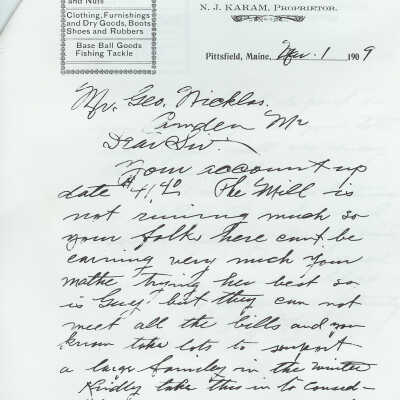 and Nuts
Clothing, Furnishings
and Dry Goods, Boots
Shoes and Rubbers
Base Ball Goods
Fishing Tackle
N. J. KARAM, PROPRIETOR.
Pittsfield, Maine, Mar. 1 1909
Mr. Geo. Nicklas.
Camden Me
Dear Sir.
Your account up
date $41.40 The Mill is
not runing much so
your folks here cant be
earning very much your
mothe trying her best so
is Guy, but they can not
meet all the bills and you
know take lots to support
a large famley in the winter
Kindly take this in to consed-